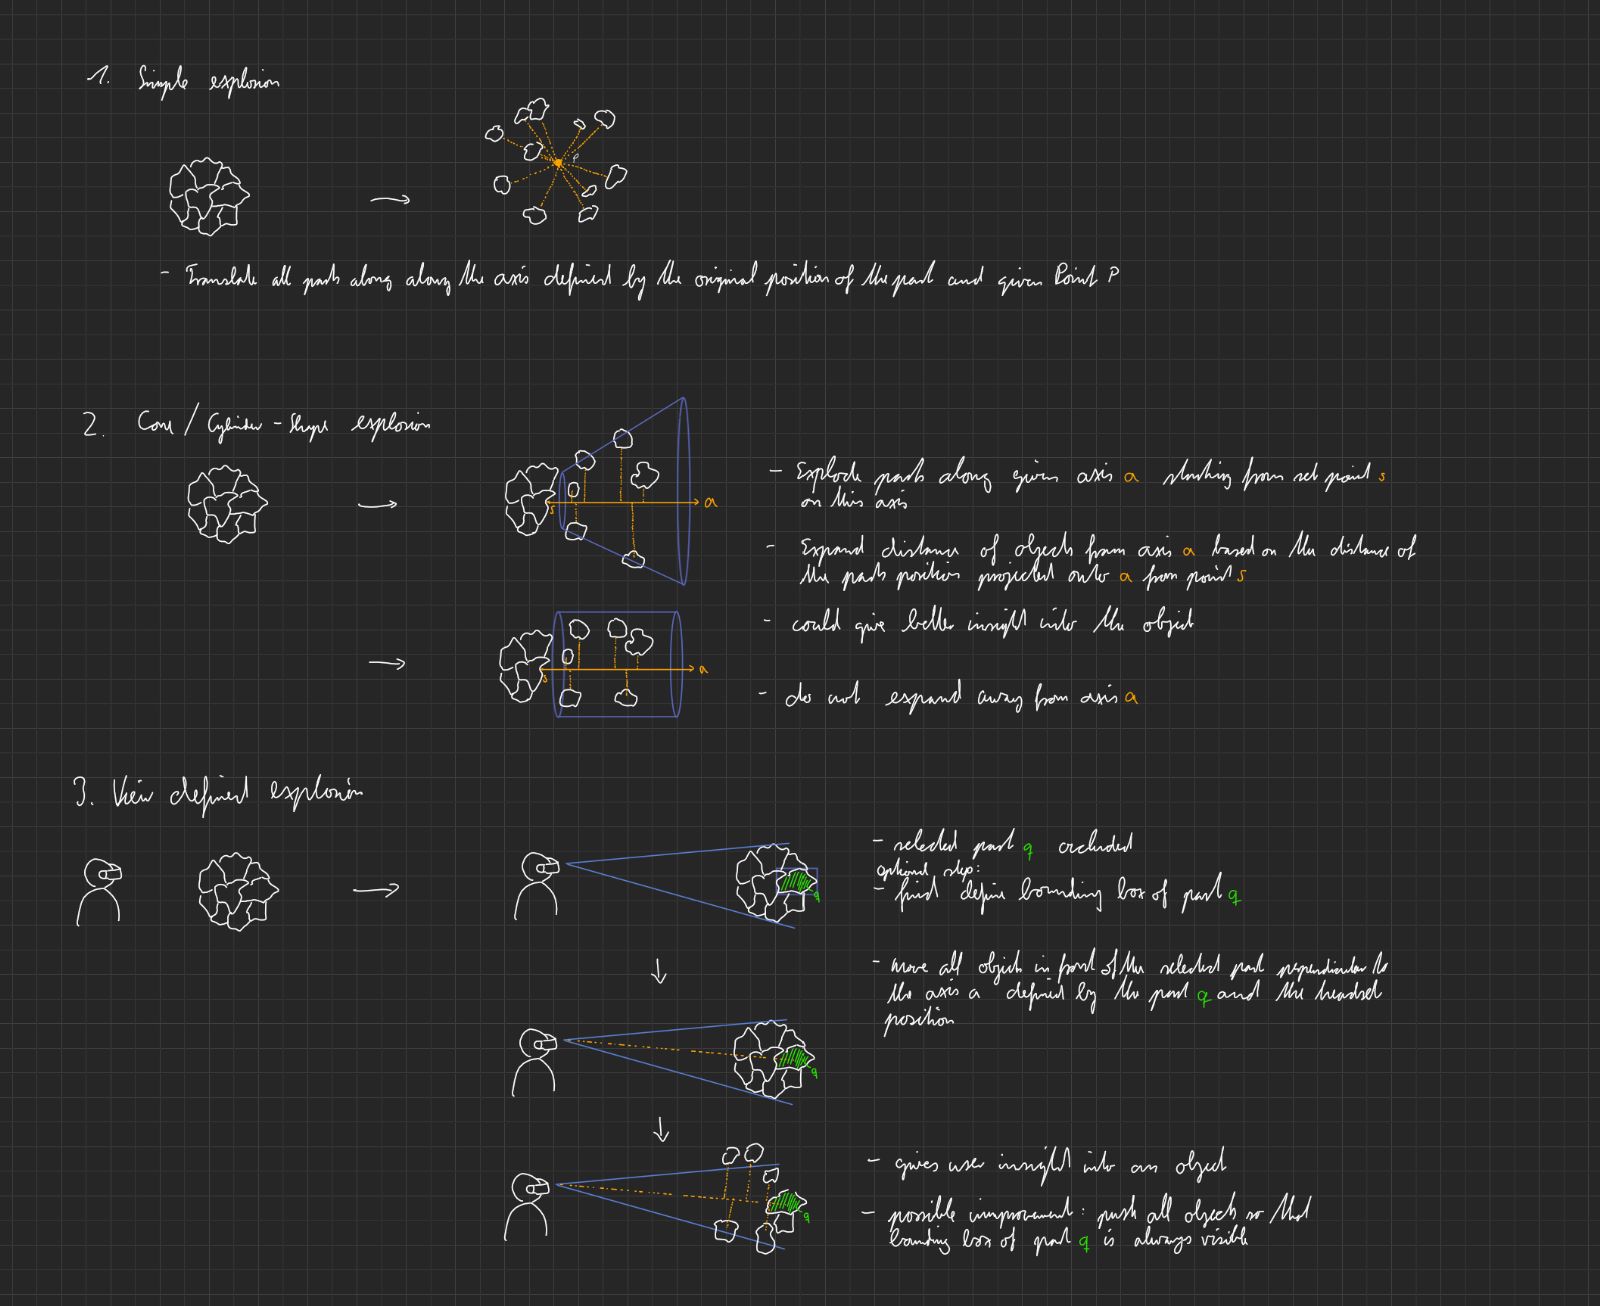 1. Simple explosion
P
- Translate all parts along along the axis defined by the original position of the part and given Point P
2. Cone / Cylinder - Shape explosion
s
a
- Explode parts along given axis a starting from set point s
on this axis
- Expand distance of objects from axis a based on the distance of
the parts position projected onto a from point s
- could give better insight into the object
s
a
- do not expand away from axis a
3. View defined explosion
q
- selected part q occluded
optional step:
- first define bounding box of part q
- move all objects in front of the selected part perpendicular to
the axis a defined by the part q and the headset
position
q
q
- gives user insight into an object
- possible improvement: push all objects so that
bounding box of part q is always visible